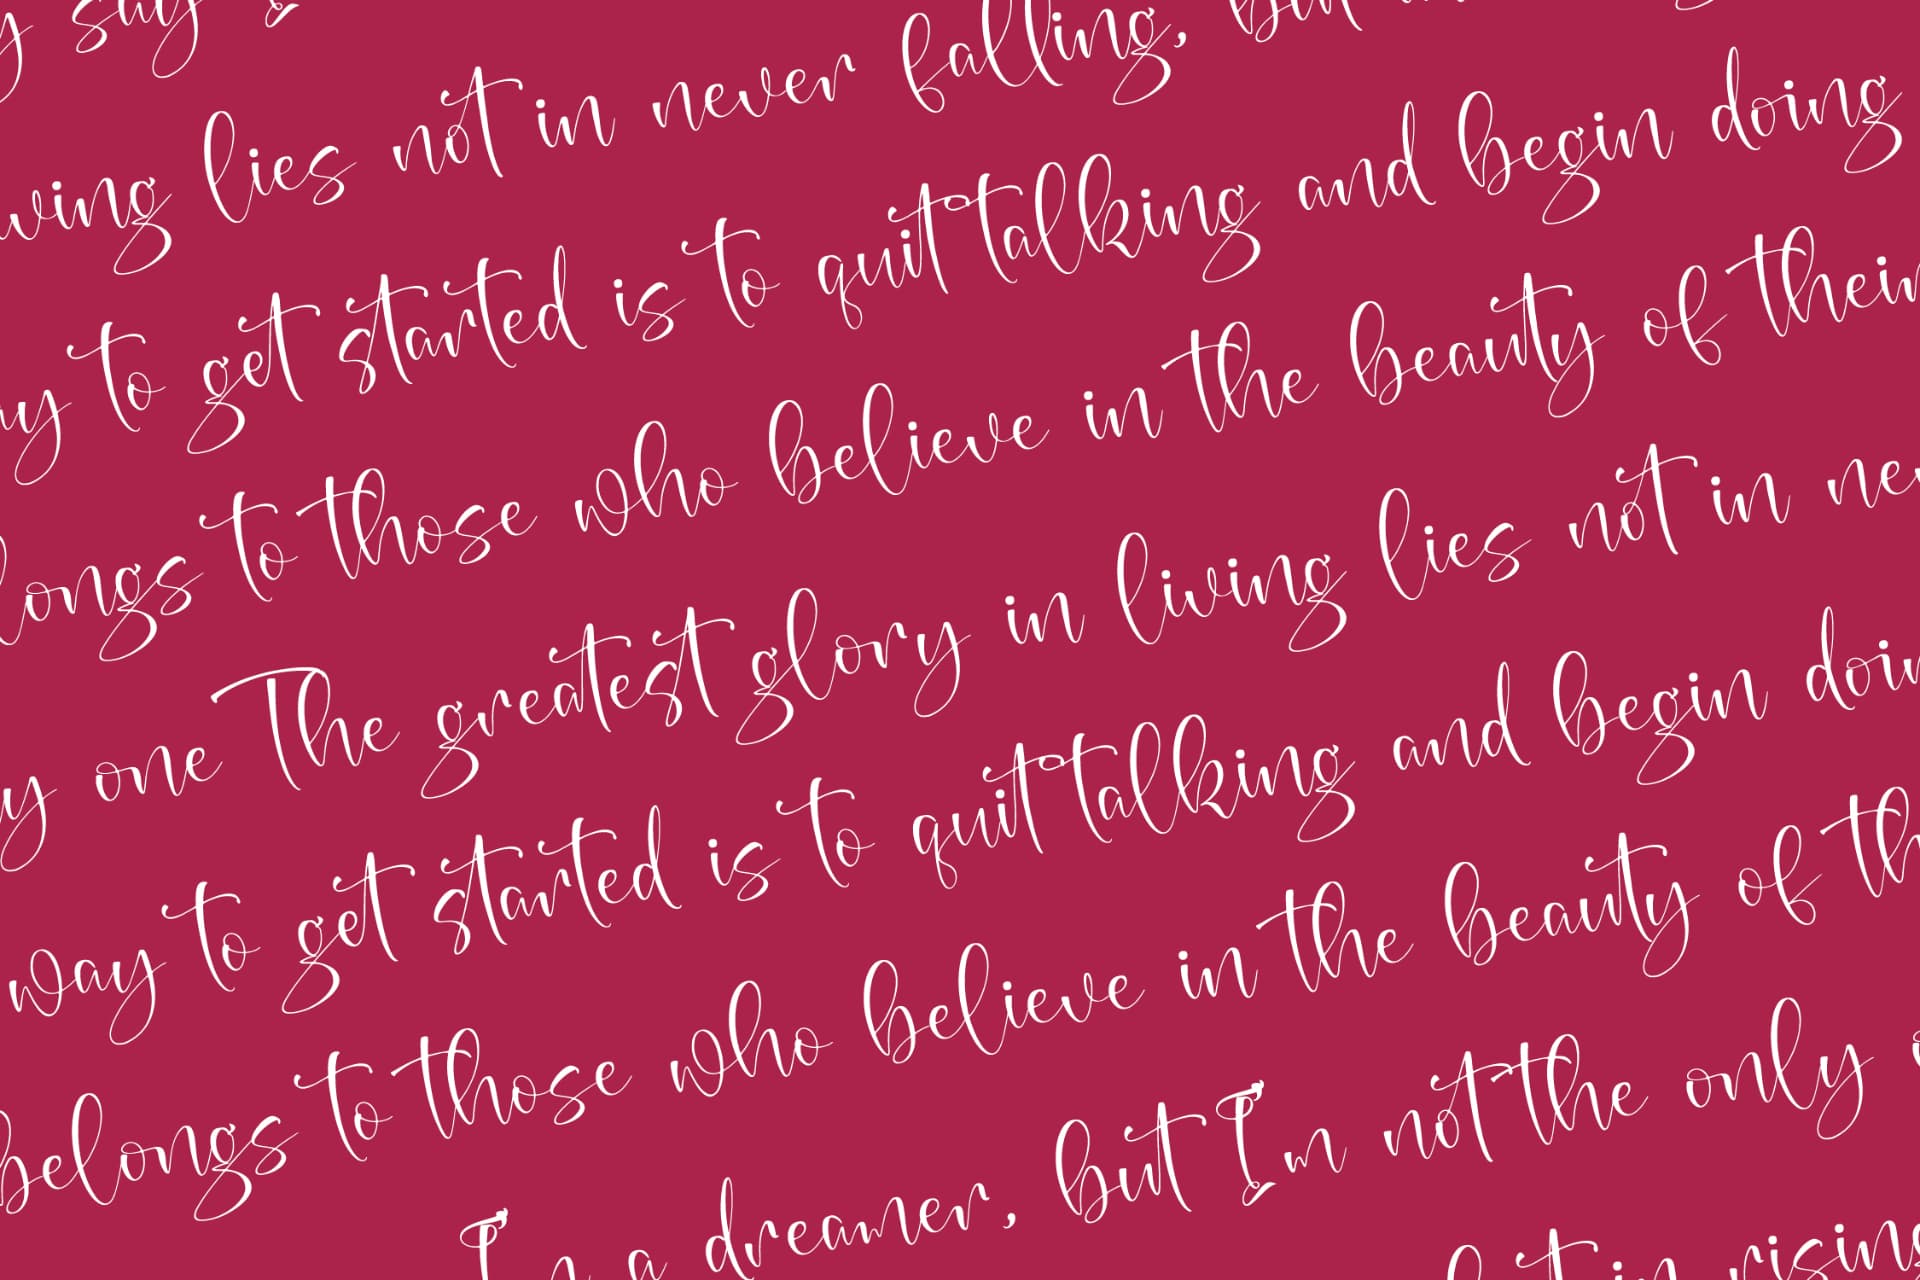 say I
ving lies not in never falling, but
ay to get started is to quit talking and begin doing
longs to those who believe in the beauty of their
y one The greatest glory in living lies not in nev
way to get started is to quit talking and begin doin
belongs to those who believe in the beauty of th
a dreamer, but I'm not the only
in rising